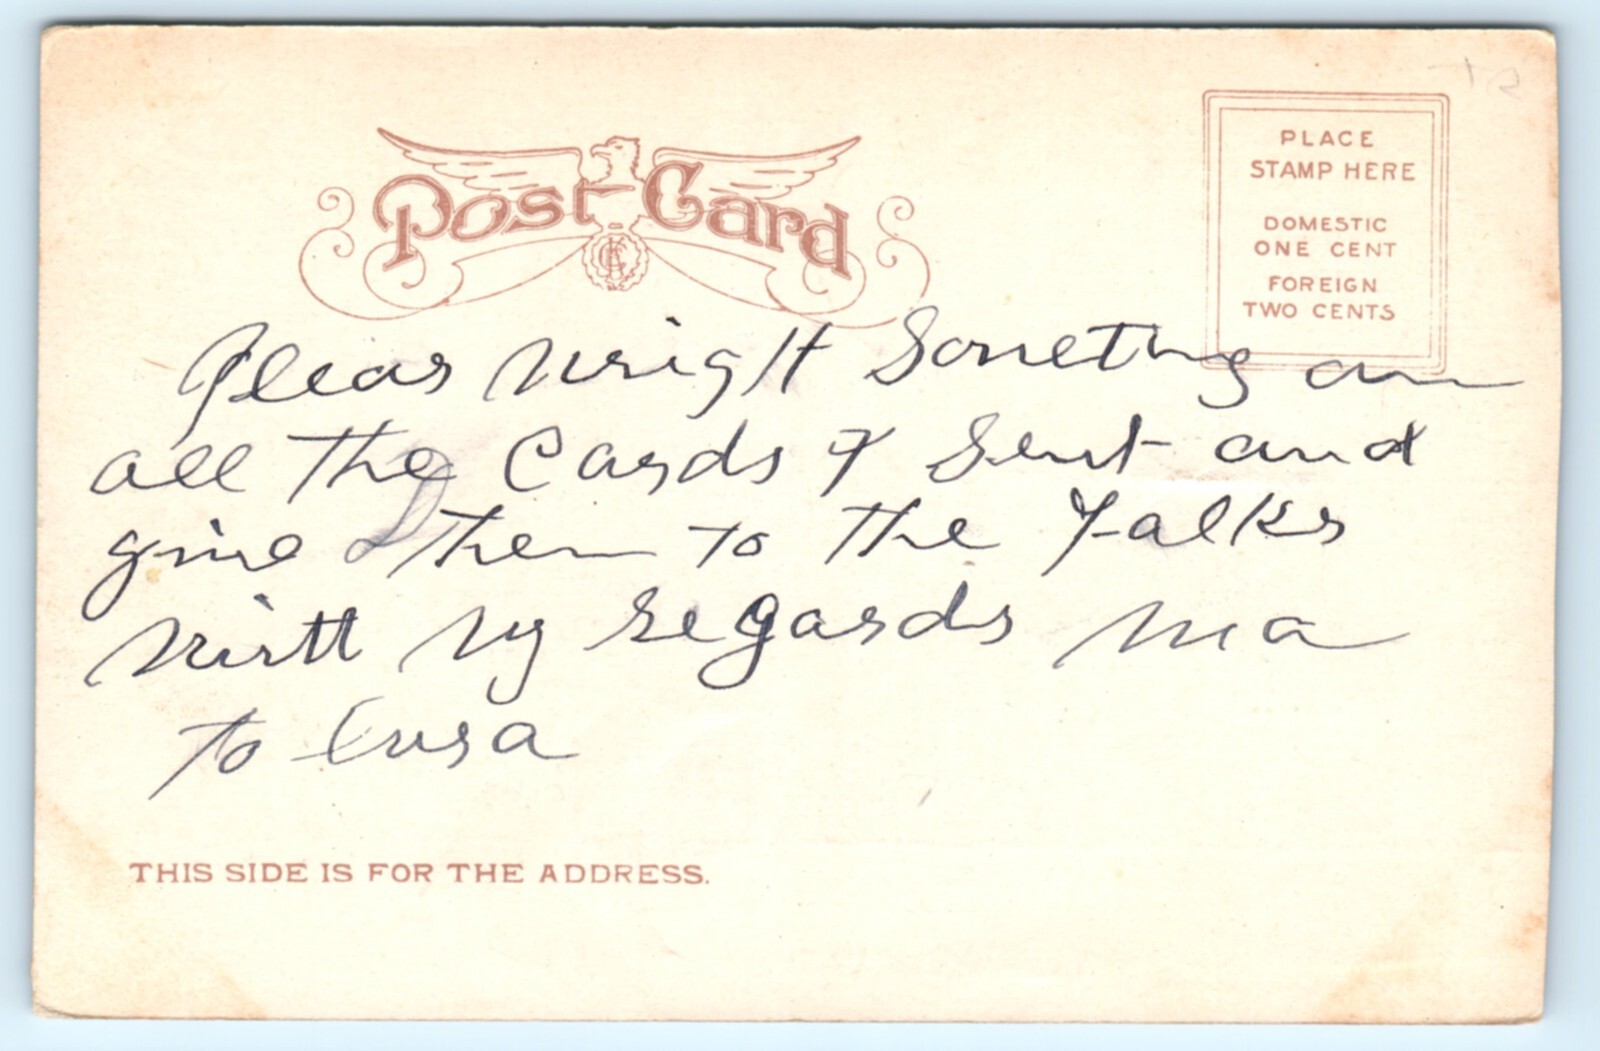 Post Card
PLACE
STAMP HERE
DOMESTIC
ONE CENT
FOREIGN
TWO CENTS
Pleas wright Someting on
all the Cards I Sent and
give them to the Falks
with my regards ma
to
THIS SIDE IS FOR THE ADDRESS.